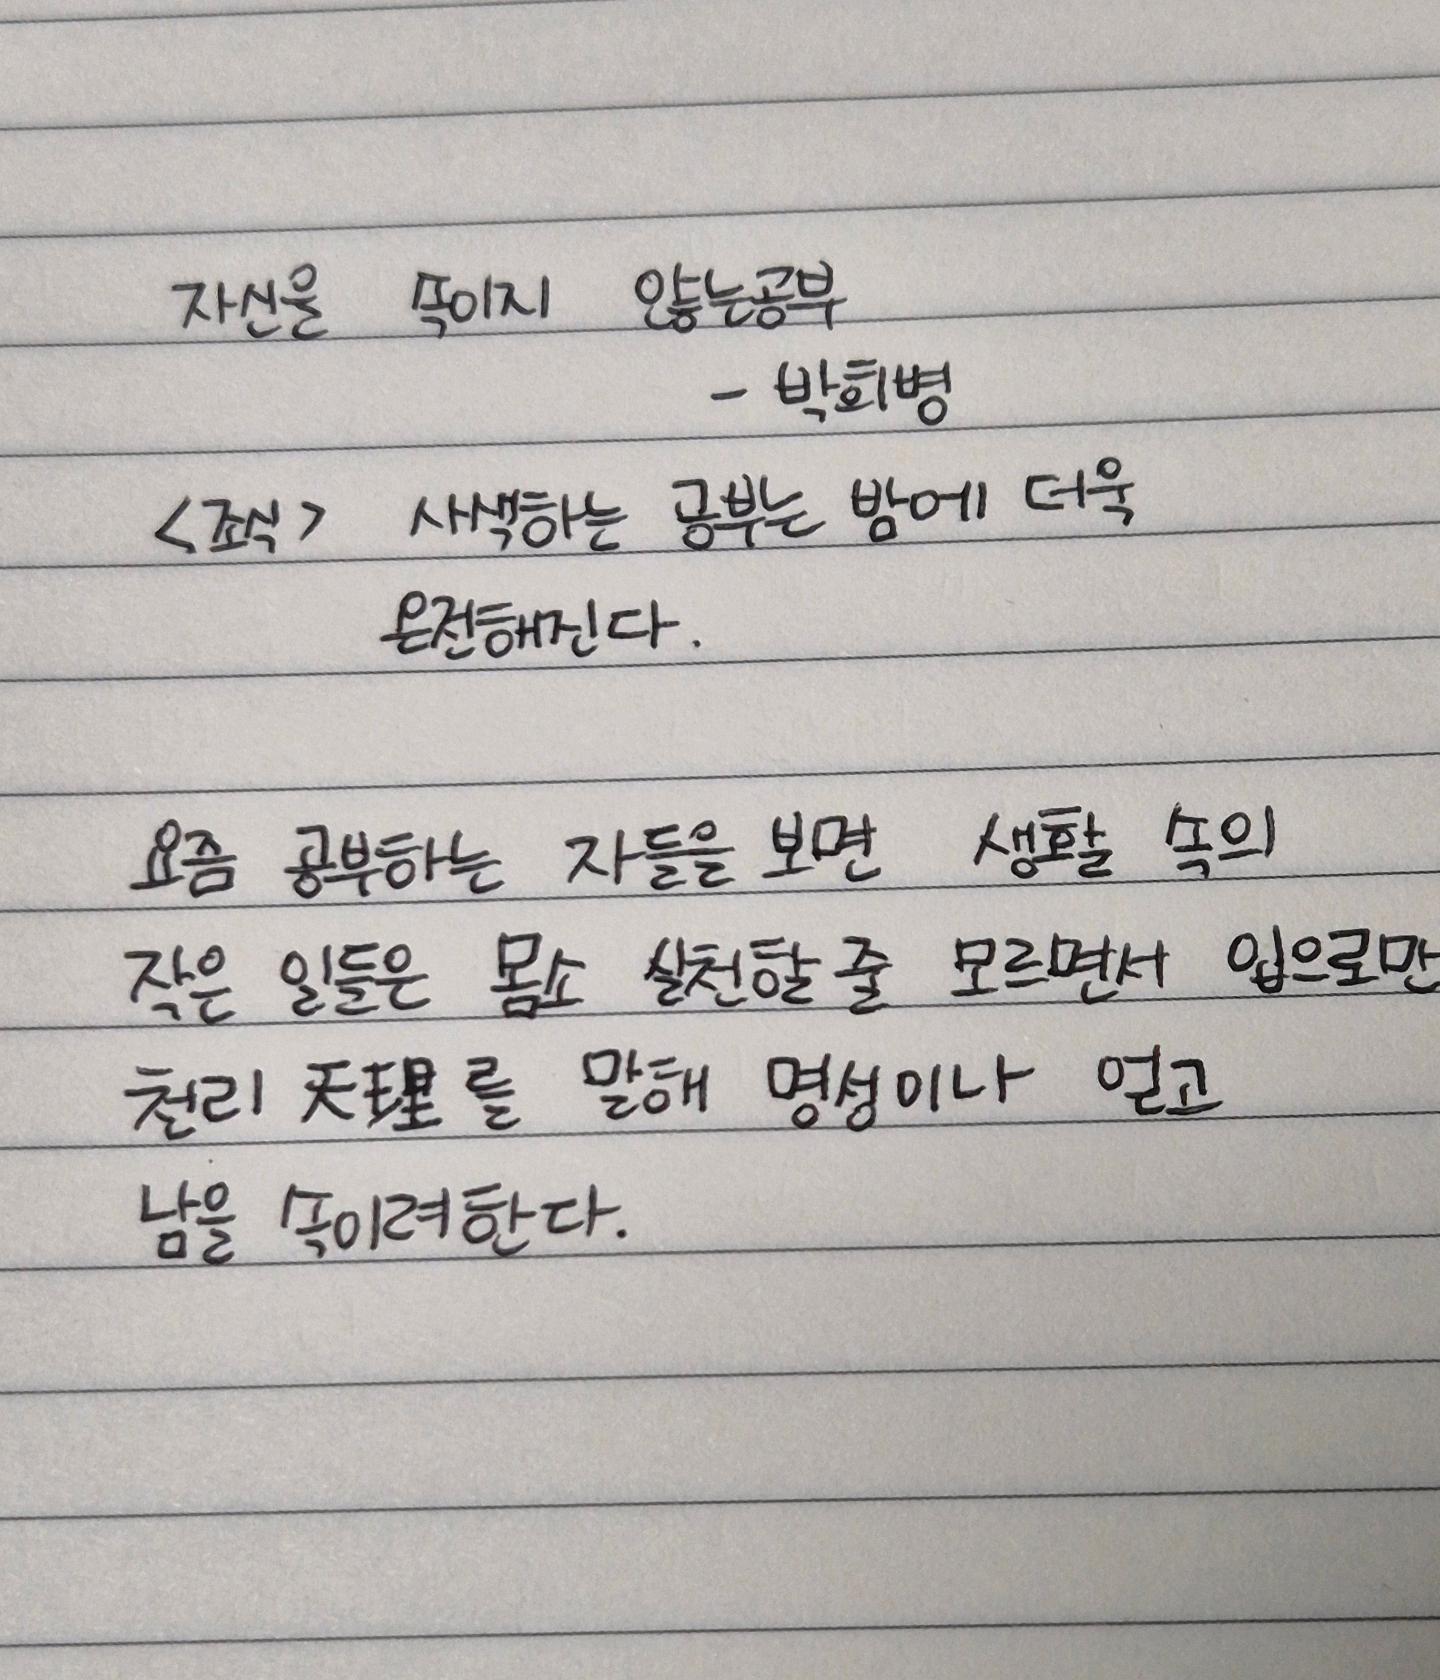 자신을 속이지 않는공부
- 박희병
<조식> 사색하는 공부는 밤에 더욱
온전해진다.
요즘 공부하는 자들을 보면 생활 속의
작은 일들은 몸소 실천할 줄 모르면서 입으로만
천리 天理를 말해 명성이나 얻고
남을 속이려한다.